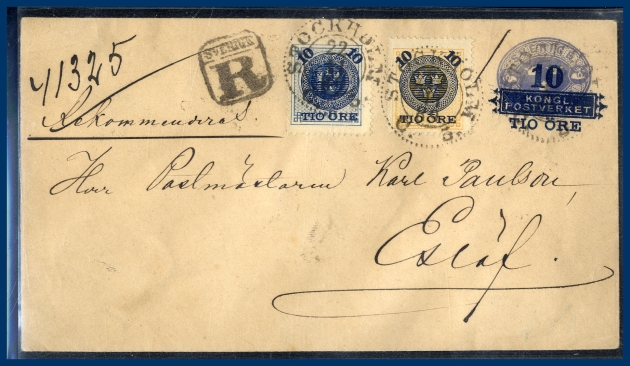 41325
SVERIGE
R
Rekommenderas.
STOCKHOLM
22
10 10
TIO ÖRE
STOCKHOLM
10 10
TIO ÖRE
10
KONGL.
POSTVERKET
TIO ÖRE
Herr Postmästaren Karl Paulson,
Eslöf.